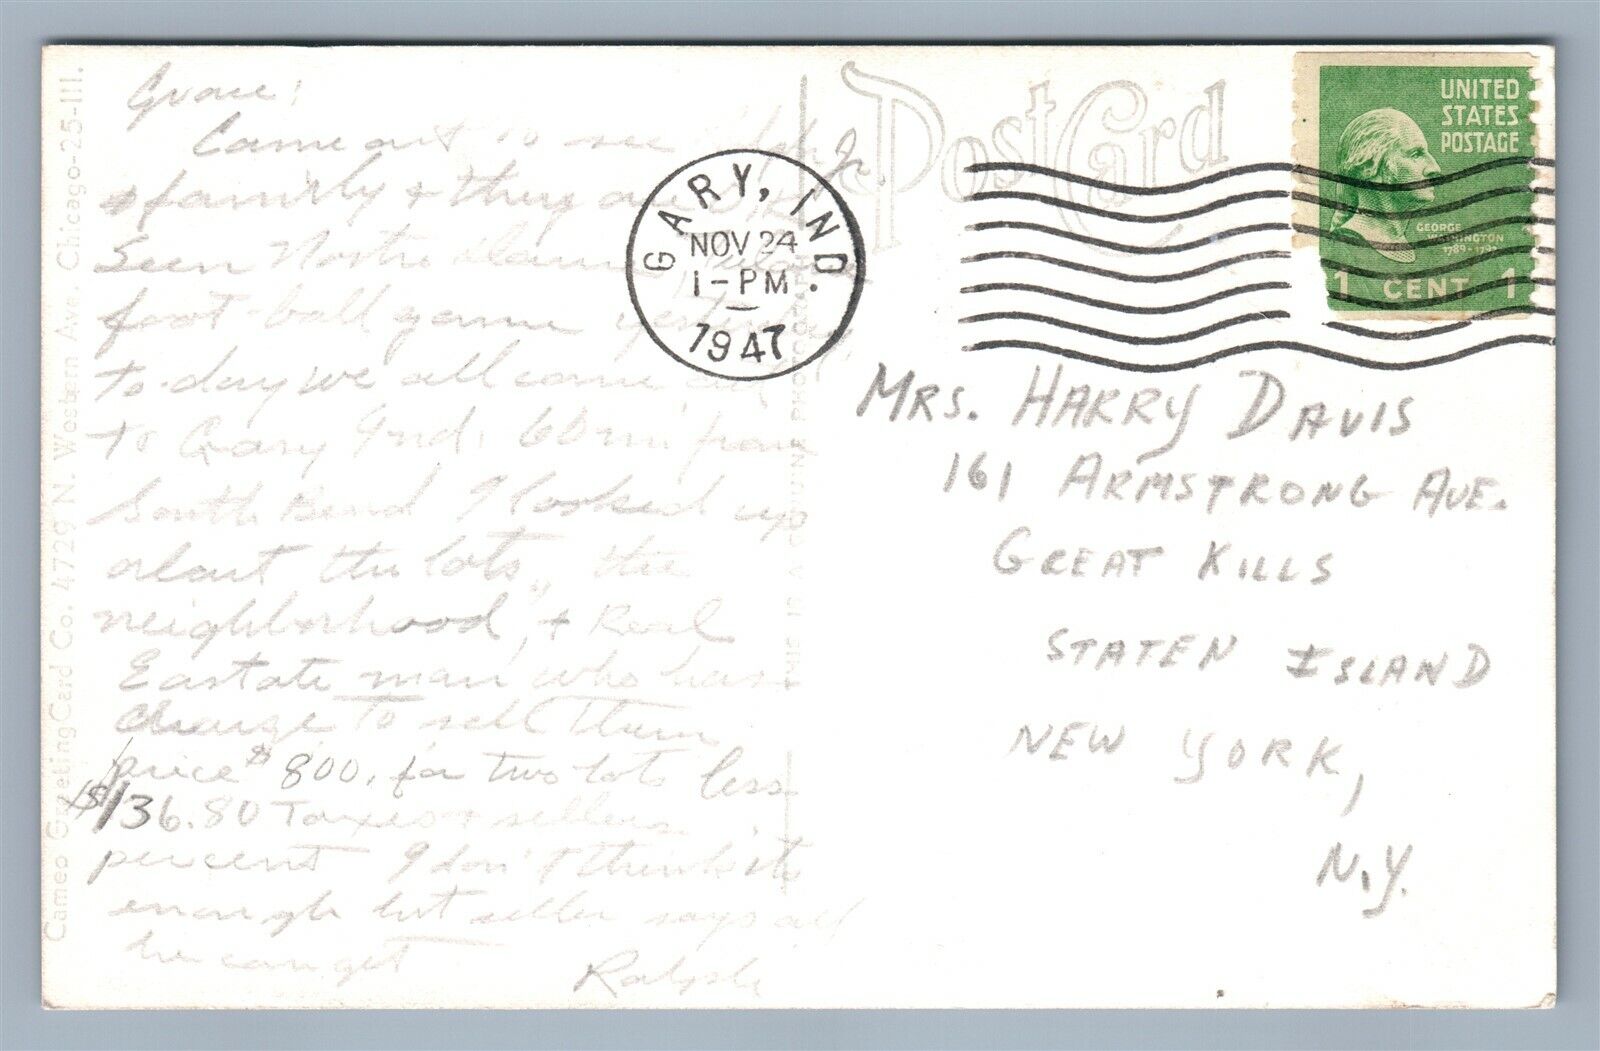 Grace;
Came out to see Jr.
& family & they are
Seen Notre Dame
foot-ball game yesterday
to-day we all came out
to Gary Ind. 60 mi from
South Bend I looked up
about the lots, the
neighborhood, & Real
Eastate man who has
charge to sell them
price $800. for two lots less
$136.80 Taxes & sellers
percent I don't think its
enough but seller says all
he can get
Ralph
Cameo Greeting Card Co. 4729 N. Western Ave. Chicago-25-Ill.
Post Card
THIS IS A GENUINE PHOTO
GARY, IND.
NOV 24
1-PM
1947
UNITED
STATES
POSTAGE
GEORGE
WASHINGTON
1789-1797
1 CENT 1
MRS. HARRY DAVIS
161 ARMSTRONG AVE.
GREAT KILLS
STATEN ISLAND
NEW YORK,
N.Y.